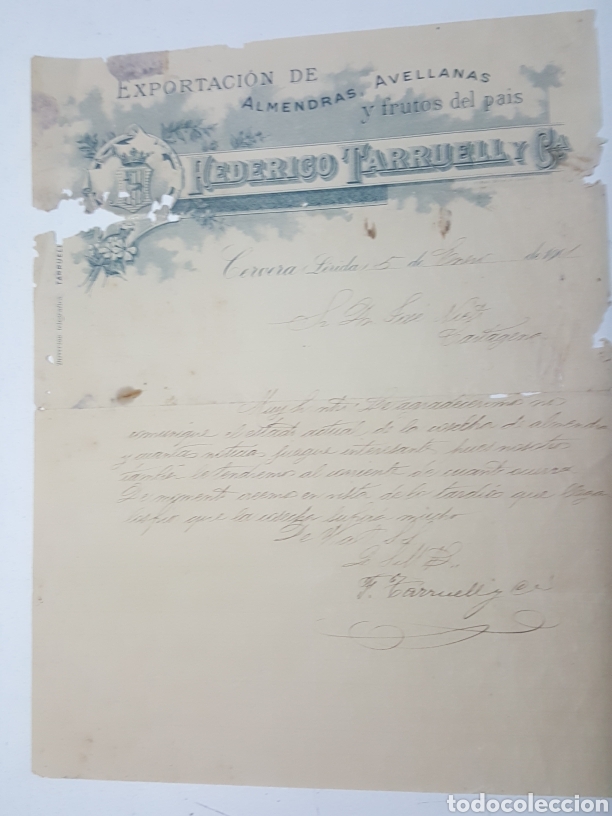 EXPORTACIÓN DE
ALMENDRAS, AVELLANAS
y frutos del pais
FEDERICO TARRUELL Y Cª
Dirección telegráfica: TARRUELL
Cervera (Lérida) 5 de Enero de 19
Sr. Dn José
Cartagena
Muy Sr. ntro: Le agradeceremos nos
comunique el estado actual de la cosecha de almendra
y cuantas noticias juzgue interesante, pues nosotros
también le tendremos al corriente de cuanto ocurra
De momento creemos en vista de lo tardío que llega
el frío que la cosecha sufrirá mucho
De Vd. S.S.
F. Tarruell y Cª
todocoleccion